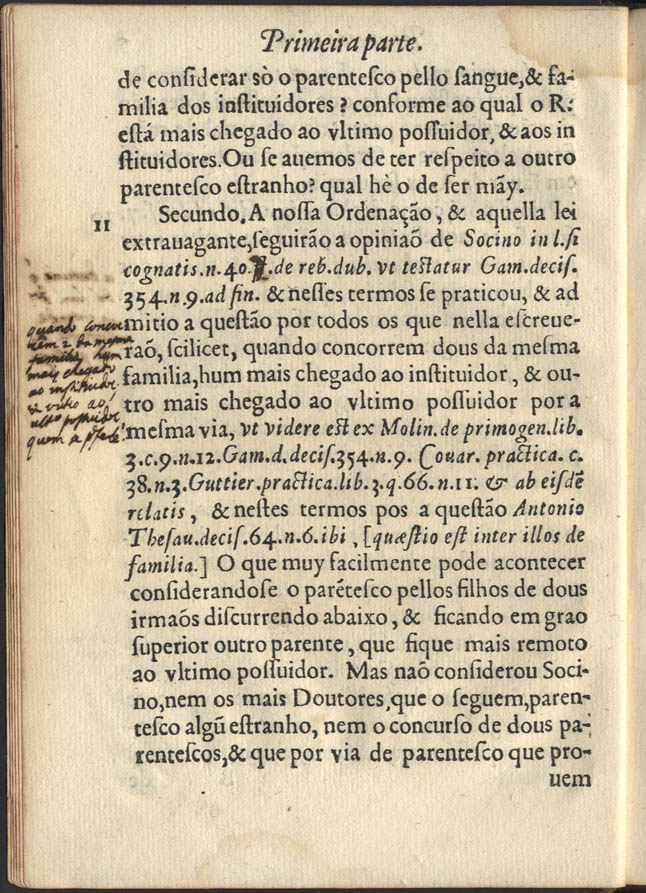 Primeira parte.
de conſiderar sò o parenteſco pello ſangue,& fa-
milia dos inſtituidores ? conforme ao qual o R:
eſtá mais chegado ao vltimo poſſuidor, & aos in
ſtituidores. Ou ſe auemos de ter reſpeito a outro
parenteſco eſtranho? qual hè o de ſer mãy.
11
Secundo. A noſſa Ordenação, & aquella lei
extrauagante,ſeguirão a opiniaõ de Socino in l.ſi
cognatis.n.40. ff.de reb.dub. vt teſtatur Gam.deciſ.
354.n.9.ad fin. & neſſes termos ſe praticou, & ad
mitio a queſtão por todos os que nella eſcreue-
raõ, ſcilicet, quando concorrem dous da meſma
familia,hum mais chegado ao inſtituidor, & ou-
tro mais chegado ao vltimo poſſuidor por a
meſma via, vt videre eſt ex Molin.de primogen.lib.
3.c.9.n.12.Gam.d.deciſ.354.n.9. Couar. practica. c.
38.n.3.Guttier.practica.lib.3.q.66.n.11. & ab eiſdē
relatis, & neſtes termos pos a queſtão Antonio
Theſau.deciſ.64.n.6.ibi, [quæſtio eſt inter illos de
familia.] O que muy facilmente pode acontecer
conſiderandoſe o parēteſco pellos filhos de dous
irmaõs diſcurrendo abaixo, & ficando em grao
ſuperior outro parente, que fique mais remoto
ao vltimo poſſuidor. Mas naõ conſiderou Soci-
no,nem os mais Doutores,que o ſeguem,paren-
teſco algũ eſtranho, nem o concurſo de dous pa-
renteſcos,& que por via de parenteſco que pro-
uem
quando
2 da meſma
familia, hum
mais chegado
ao inſtituidor
ao
poſſuidor
quem a